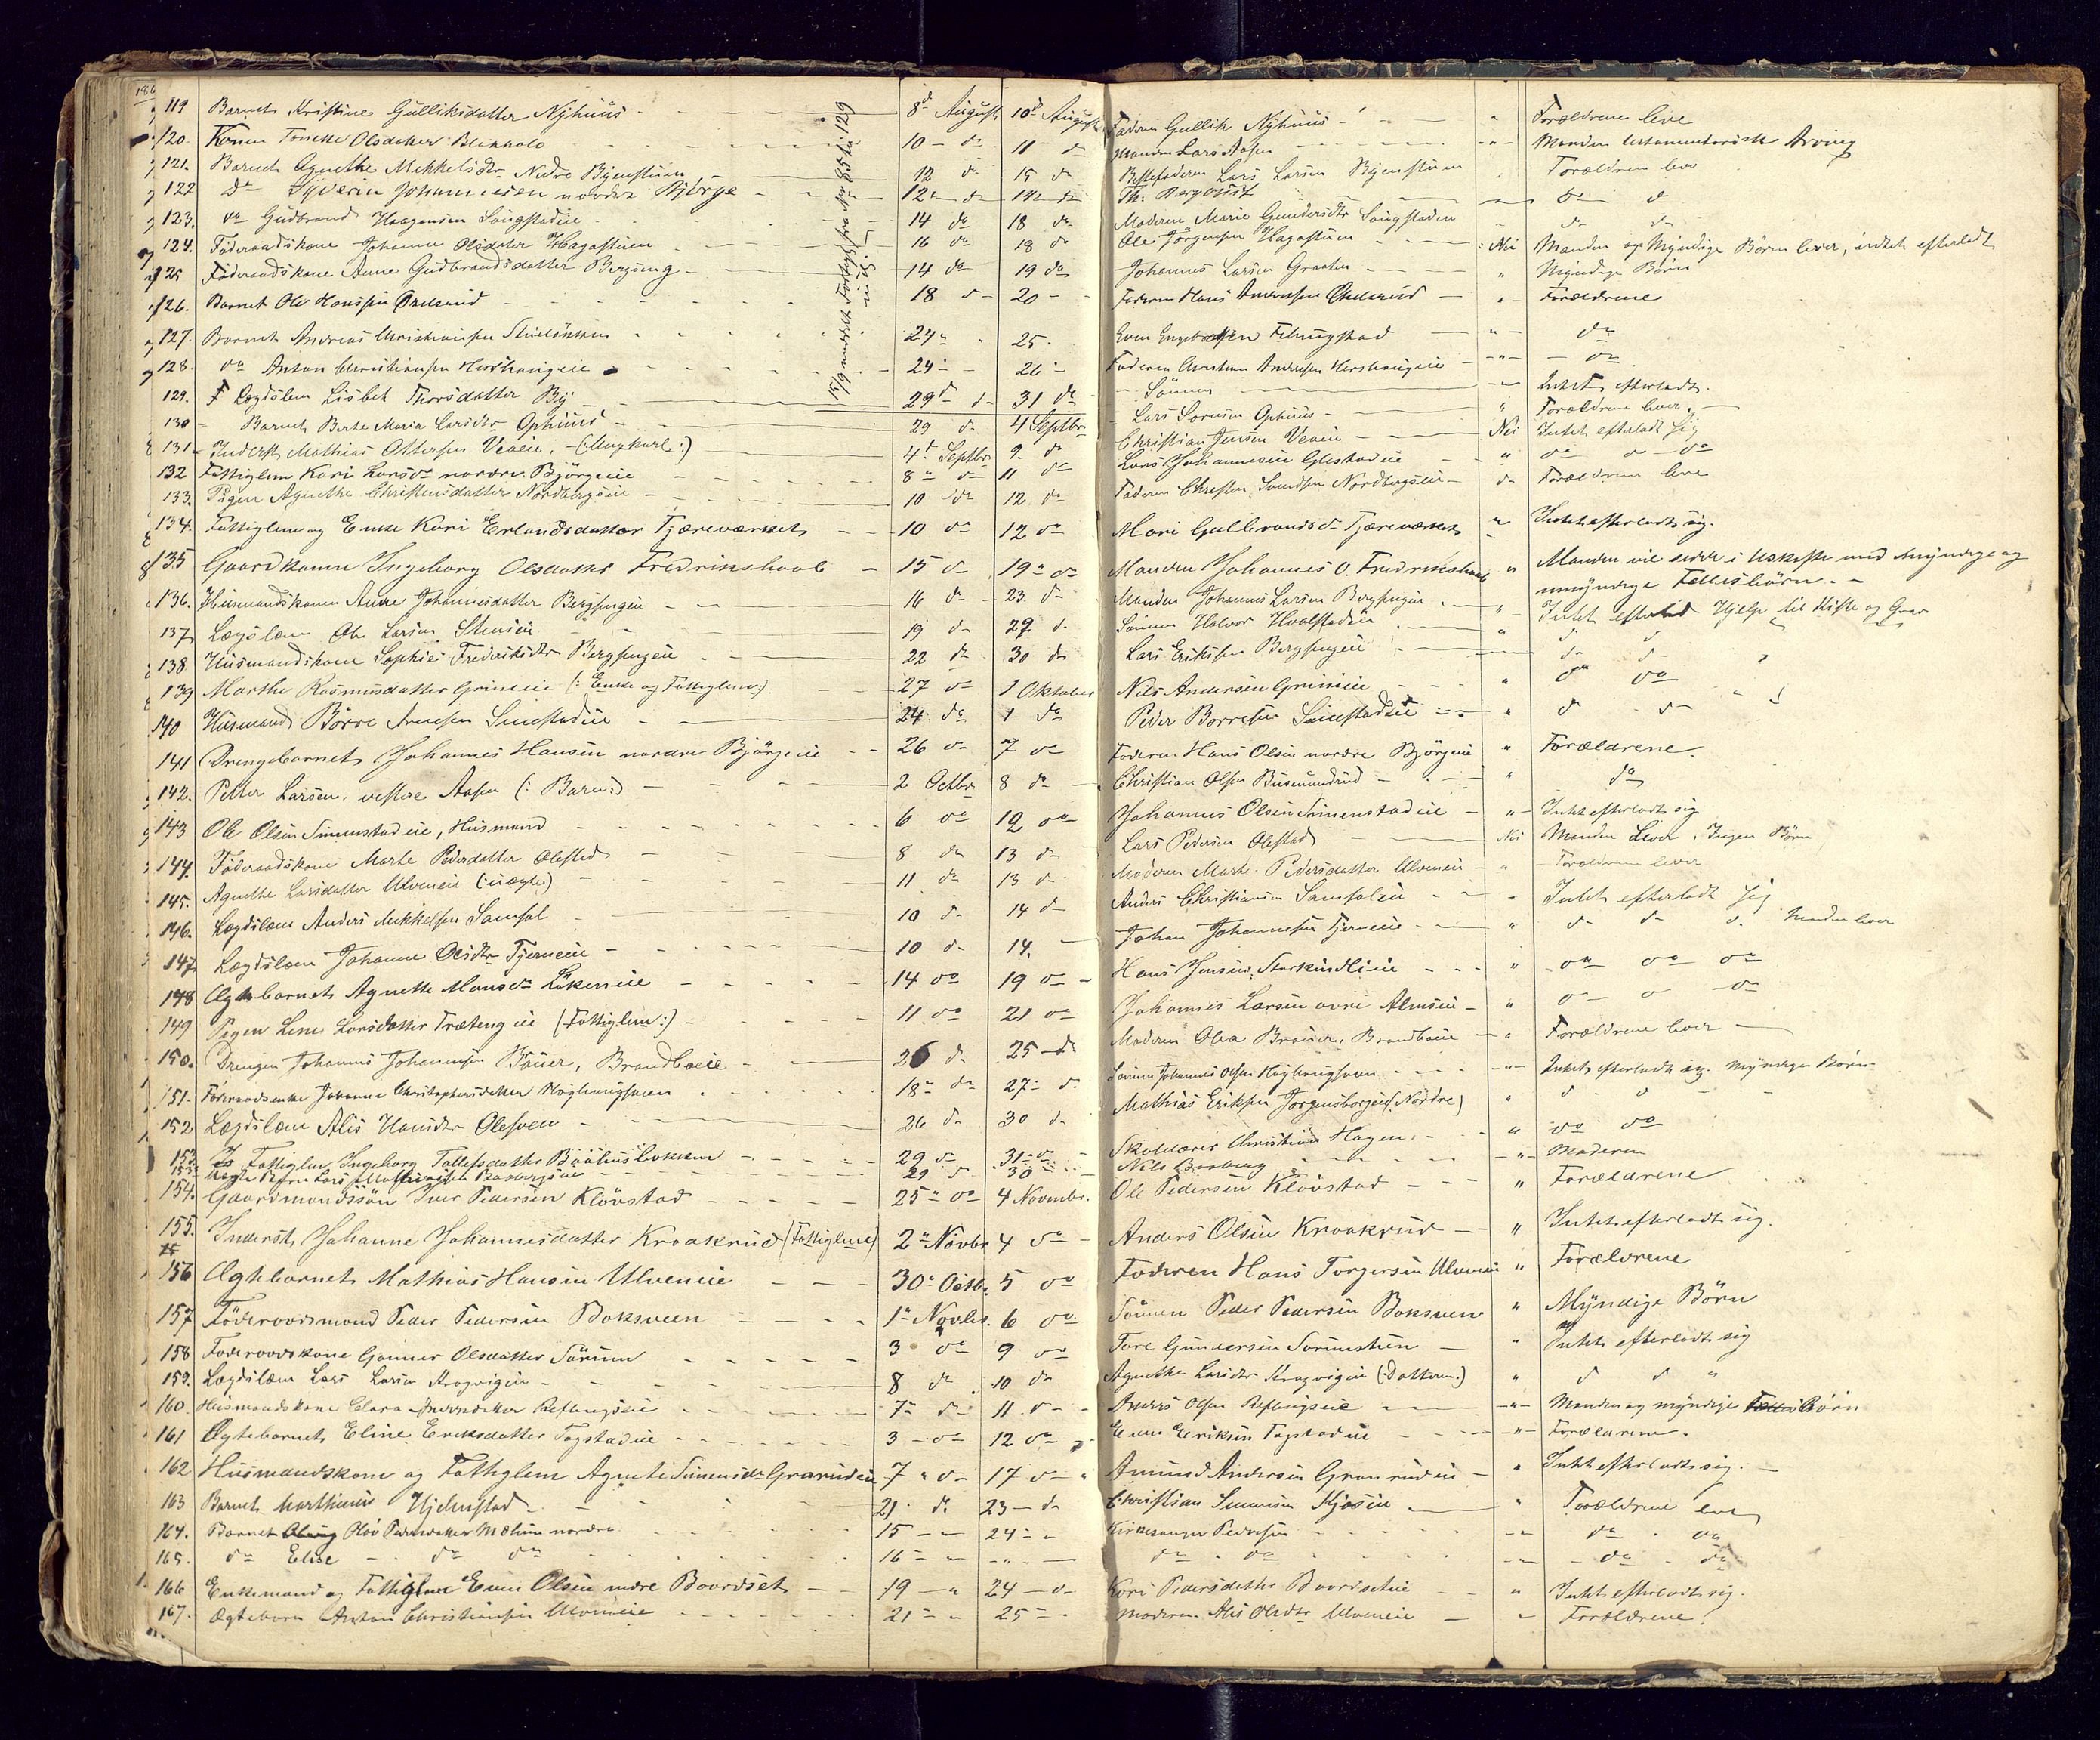 119 Barnet Kristine Gulliksdatter Nÿhuus - 8de August 10de August Faderen Gullik Nÿhuus - " Forældrene leve
120. Konen Olsdatter 10 - do 11 - do Manden Lars Aasen - " - Manden testamentarisk Arving
121. Barnet Agnethe Mikkelsdtr. Nedre Bjenstuen 12 do 15 do Bestefaderen Lars Larsen Bjenstuen " Forældrene leve
122 do Syverin Johannesen nordre Bjørge 12 - do 14 - do Th. Bergqvist do do
123. do Gudbrand Haagensen Laugstadeie 14 do 18 do Moderen Marie Gundersdtr Laugstadeie do do
124. Føderaadskone Johanne Olsdatter Hagastuen 16 do 18 do Ole Jörgensen Hagastuen - Nei Manden og Mÿndige Börn lever, intet efterladt
125 Føderaadskone Anne Gudbrandsdatter Bergseng 14 do 19 do Johannes Larsen Graaten " Mÿndige Börn
126. Barnet Ole Hanssen 18 do 20 - Faderen Hans Andersen " Forældrene
127. Barnet Andreas Christiansen 24 " 25. Even do
128. do Anton Christiansen 24 - 26 - Faderen Christian Andersen do
129. F Legdslem Lisbet Thorsdatter Bÿ 29de do 31 do Sönnen Intet efterladt.
15/9 anmeldt Fortegn. fra No. 85 til 129 incl.
130 Barnet Berte Maria Larsdtr Ophuus 29 do 4 Septbr. Lars Sorensen Ophuus " Forældrene lever.
131 Inderst Mathias Ottersen Veaeie - (Ungkarl:) 4de Septbr. 9. do Christian Jensen Veaeie - Nei Intet efterladt sig
132 Fattiglem Kari Larsdr nordre Björgeeie 8 " do 11 do Lars Johannesen " do do do
133. Pigen Agnethe Christensdatter Nordbergseie 10 do 12 do Faderen Christen Svendsen Nordbergseie do Forældrene leve
134. Fattiglem og Enke Kari Erlandsdatter Tjæreværket 10 do 12 do Mari Gulbrandsdr Tjæreværket " Intet efterladt sig.
135 Gaardkonen Ingeborg Olsdatter Fredrikshaab - 15 do 19 " do Manden Johannes O. Fredrikshaab " Manden vil sidde i Uskifte med mÿndige og
umÿndige Fællesbörn. -
136. Husmandskonen Anne Johannesdatter Bergsengeie 16 do 23 do Manden Johannes Larsen Bergsengeie " Intet efterladt Hjelp til Kiste og Grav
137 Lægdslem Ole Larsen 19 do 27 do Sönnen Halvor " do do
138 Husmandskone Sophie Frederiksdtr Bergsengeie 22 do 30 do Lars Eriksen Bergsengeie do do
139 Marthe Rasmusdatter Grimeie (: Enke og Fattiglem:) 27 do 1 Oktober Nils Andersen Grimeie " do do
140 Husmand Börre Arnesen Simestadeie 24. do 1 do Peder Borresen Simestadeie " do do
141 Drengebarnet Johannes Hansen nordre Björgeeie 26 do 7 do Faderen Hans Olsen nordre Björgeeie " Forældrene
142. Petter Larsen, vestre Aasen (: Barn:) 2 Octbr 8 do Christian Olsen " do
143 Ole Olsen Simenstadeie, Husmand 6 do 12 do Johannes Olsen Simenstadeie " - Intet efterladt sig
144. Føderaadskone Marte Pedersdatter Olestad 8 do 13 do Lars Pedersen Olestad Nei Manden Lever. Ingen Börn
145. Agnethe Larsdatter Ulveneie (: uægte) 11 do 13 do Moderen Marte Pedersdatter Ulveneie " Forældrene lever
146. Lægdslem Anders Mikkelsen Samsal 10 do 14 do Anders Christiansen Samsaleie " Intet efterladt sig
147 Lægdslem Johanne Olsdtr Tjerneeie 10 do 14. Johan Johannesen Tjerneeie " do do do Manden lever
148 Ægtebarnet Agnette Hansdr Lökeneie 14 do 19 do Hans Jensen " do do do
149 Pigen Lene Larsdatter Træteng eie (Fattiglem:) 11 do 21 do Johannes Larsen övre Almseie " do do do
150. Drengen Johannes Johannesen Braüer, Brandboeie 26 do 25 - do Moderen Olea Braüer, Brandboeie " Forældrene lever
151. Föderaadsenke Johanne Christophersdatter 18 " do 27 - do Sönnen Johannes Olsen " Intet efterladt sig. Mÿndige Börn
152 Lægdslem Alis Hansdtr Olesveen 26 do 30 do Mathias Eriksen (Nordre) " do do
153 Fattiglem Ingeborg Tollefsdatter 29 do 31 - do Skolelærer Christian Hagen " do do
29 do 30 Nils " Moderen
154. Gaardmandssön Iver Pedersen Klövstad 25 " do 4 Novembr. Ole Pedersen Klövstad " Forældrene
155. Inderst Johanne Johannesdatter Kraakrud (Fattiglem) 2 " Novbr 4 do Anders Olsen Kraakrud " Intet efterladt sig.
156 Ægtebarnet Mathias Hansen Ulveneie 30 " Octbr. 5 do Faderen Hans Torgersen Ulveneie " Forældrene
157 Föderaadsmand Peder Pedersen Boksveen 1 " Novbr. 6 do Sönnen Peder Pedersen Boksveen " Mÿndige Börn
158 Föderaadskone Gunner Olsdatter Sörum 3 do 9 do Tore Gundersen Sorumstuen " Intet efterladt sig
159. Lægdslem Lars Larsen Kragvigeie 8 do 10 do Agnethe Larsdtr Kragvigeie (: Datteren:) " do do "
160. Husmandskone Clara 7 " do 11 do Anders Olsen " Manden og mÿndige Börn
161 Ægtebarnet Eline Eriksdatter Fagstadeie 3 - do 12 do Eriksen Fagstadeie " Forældrene.
162 Husmandskone og Fattiglem Agnete Simensdr Granrudeie 7 " do 17 do Amund Andersen Granrudeie " Intet efterladt sig. -
163 Barnet Marthinus Hjelmstad 21 do 23 - do Christian " Forældrene leve
164. Barnet Olöv Pedersdatter Mælum nordre 15 - " 24 - " Kirkesanger Pedersen " do do
165. do Elise - do do 16 - " - " - do do " do do
166 Enkemand og Fattiglem Even Olsen nedre Baardset 19 - " 24 - do Kari Pedersdatter Baardseteie " Intet efterladt sig.
167. Ægtebarn Anton Christiansen Ulveneie 21 - " 25 - Moderen Alis Olsdtr Ulveneie " Forældrene